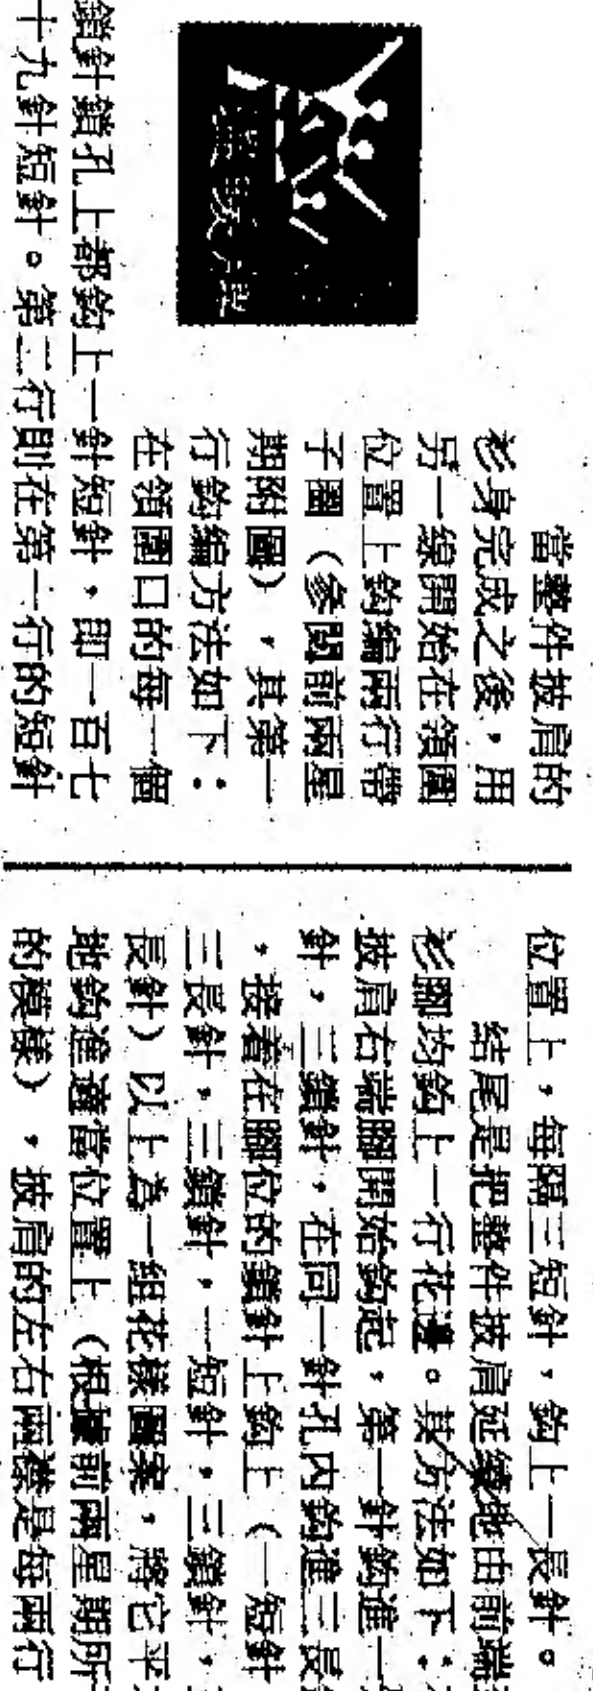 當整件披肩的
衫身完成之後，用
另一線開始在領圍
位置上鈎編兩行帶
子圈（參閱前兩星
期附圖），其第一
行鈎編方法如下：
在領圍口的每一個
鎖針鎖孔上都鈎上一針短針，即一百七
十九針短針。第二行則在第一行的短針
位置上，每隔三短針，鈎上一長針。
結尾是把整件披肩延續地由前端
衫脚均鈎上一行花邊。其方法如下：
披肩右端脚開始鈎起，第一針鈎進一
針，三鎖針，在同一針孔內鈎進三長
，接着在脚位的鎖針上鈎上（一短針
三長針，三鎖針，一短針，三鎖針，
長針）以上為一組花樣圖案，將它平
地鈎進適當位置上（根據前兩星期所
的模樣），披肩的左右兩襟是每兩行